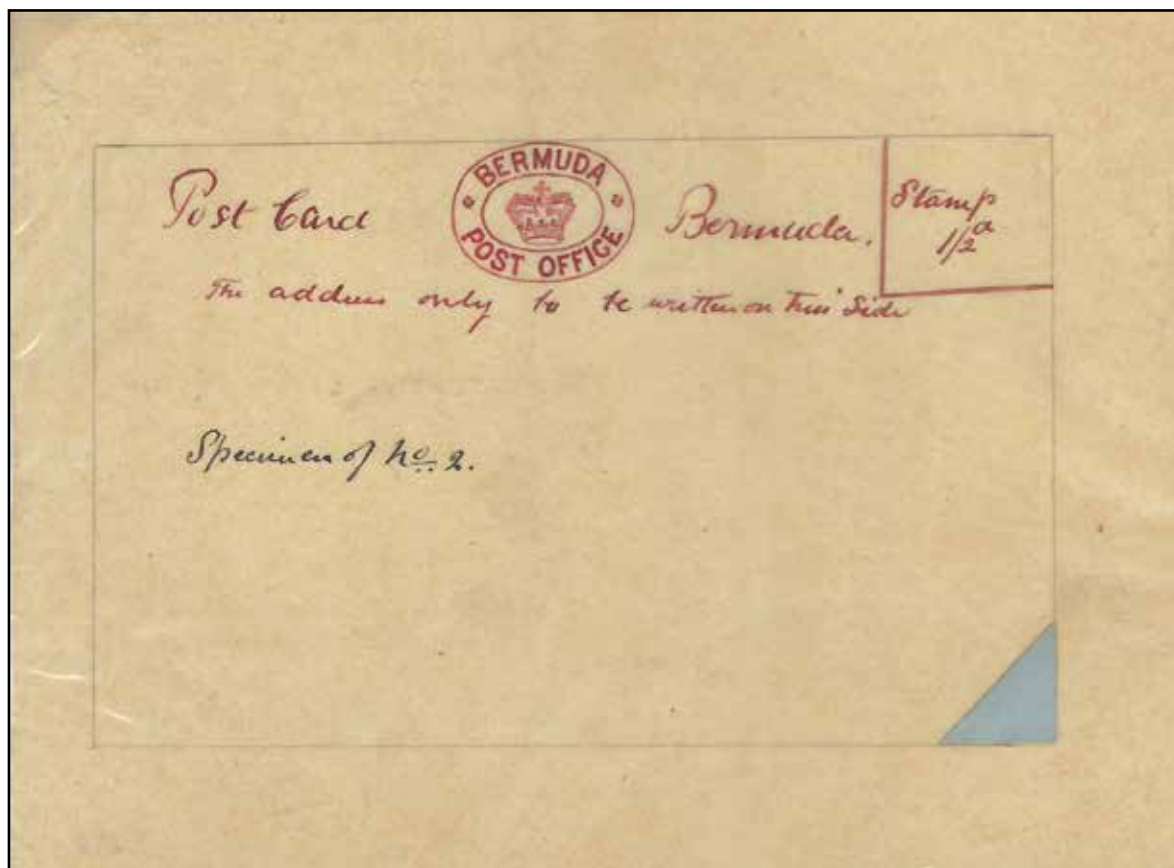 Post Card
BERMUDA
POST OFFICE
Bermuda.
Stamp
1/2 d
The address only to be written on this side
Specimen of No. 2.